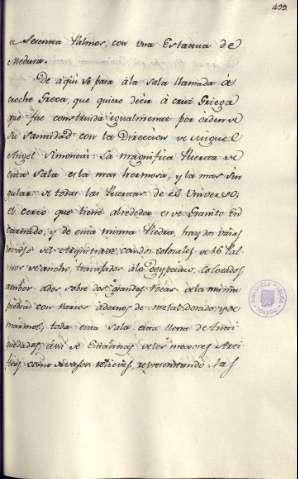 499.
a Setenta Palmos, con una Estatua de
Medusa.
De aqui se pasa á la sala llamada á
croche Greca, que quiere decir á cruz Griega
que fue construida igualmente por orden de
su Santidad con la Direccion de Miguel
Angel Simoneti: La magnifica Puerta de
esta sala es la mas hermosa, y la mas sin
gular de todas las Puertas de el Universo;
el cerco que tiene alrededor es de Granito En
carnado, y de esta misma Piedra hay dos
de Arquitrave con dos colosales de 16 Pal
mos de ancho, al Egypciaco, colocados
ambos sobre dos grandes de la misma
piedra con varios adornos de metal dorado y de
marmol; toda esta sala esta llena de Anti
guedades, asi de Estatuas de los mejores Arti
fices como de vasos relieves, representando las